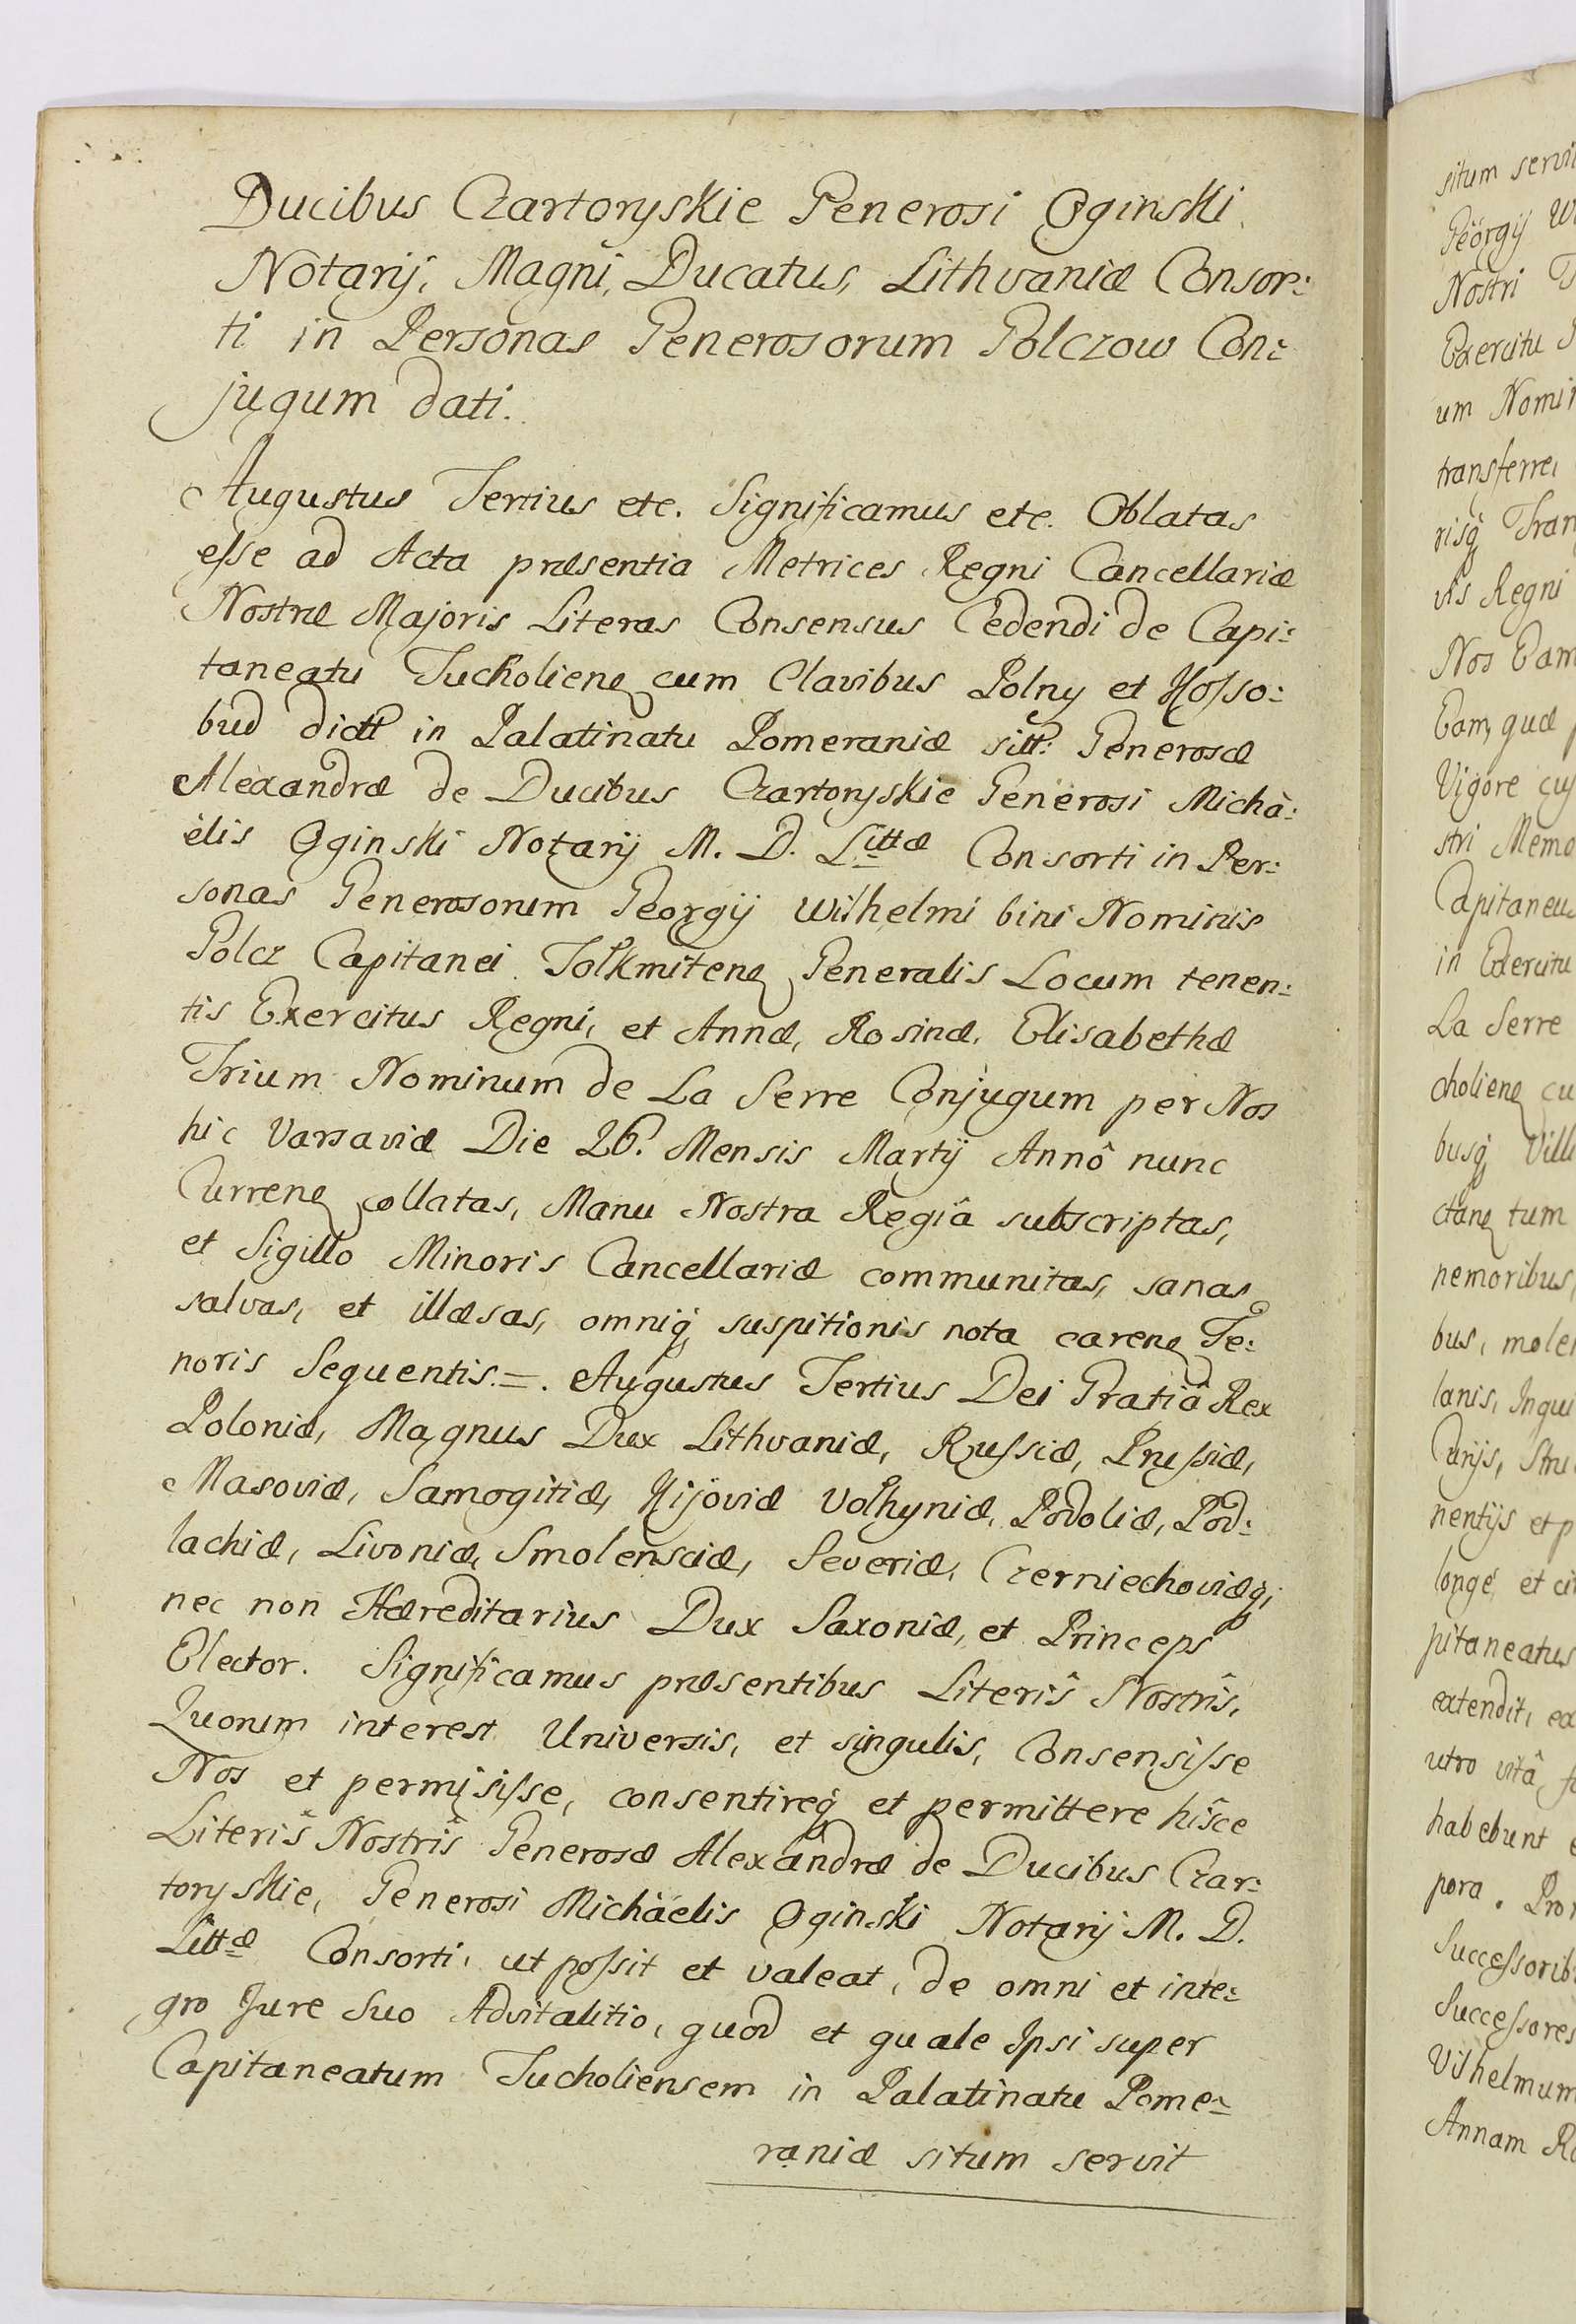 Ducibus Czartoryskie Generosi Oginski
Notarij, Magni, Ducatus, Lithvaniæ Consor:
ti in Personas Generosorum Golczow Con:
jugum dati.
Augustus Tertius etc. Significamus etc. Oblatas
eſse ad Acta præsentia Metrices Regni Cancellariæ
Nostræ Majoris Literas Consensus Cedendi de Capi:
taneatu Tucholien cum Clavibus Polny et Koſso:
bud dictt in Palatinatu Pomeraniæ sitt: Generosæ
Alexandræ de Ducibus Czartoryskie Generosi Michà:
èlis Oginski Notarij M. D. Littæ Consorti in Per:
sonas Generosorum Georgij Wilhelmi bini Nominis
Golcz Capitanei Tolkmiten Generalis Locum tenen:
tis Exercitus Regni, et Annæ, Rosinæ, Elisabethæ
Trium Nominum de La Serre Conjugum per Nos
hic Varsaviæ Die 26. Mensis Martij Annô nunc
Curren collatas, Manu Nostra Regiâ subscriptas,
et Sigillo Minoris Cancellariæ communitas, sanas
salvas, et illæsas, omniq suspitionis nota caren Te:
noris Sequentis.=. Augustus Tertius Dei Gratiâ Rex
Poloniæ, Magnus Dux Lithvaniæ, Ruſsiæ, Pruſsiæ,
Masoviæ, Samogitiæ, Kijoviæ Volhyniæ, Podoliæ, Pod:
lachiæ, Livoniæ, Smolensciæ, Severiæ, Czerniechoviæq,
nec non Hæreditarius Dux Saxoniæ, et Princeps
Elector. Significamus præsentibus Literîs Nostrîs,
Quorum interest Universis, et singulis, Consensiſse
Nos et permisiſse, consentireq et permittere hîsce
Literîs Nostrîs Generosæ Alexandræ de Ducibus Czar:
toryskie, Generosi Michàelis Oginski Notarij M. D.
Littæ Consorti, ut poſsit et valeat, de omni et inte:
gro Jure Suo Advitalitio, quod et quale Ipsi super
Capitaneatum Tucholiensem in Palatinatu Pome:
raniæ situm servit
situm servi
Georgij
Nostri
Exercitu
um Nomi
transferre,
risq Tran
vis Regni
Nos Eam
Eam, quæ
Vigore cuj
stri Memo
Capitaneu
in Exercitu
La Serre
cholien cu
busq Vill
ctan tum
nemoribus,
bus, mole
lanis, Inqui
nentijs et p
longe, et ci
pitaneatus
extendit, ex
utro vitâ
habebunt
pora. Pro
Succeſsorib
Succeſsores
Vilhelmum
Annam Ro